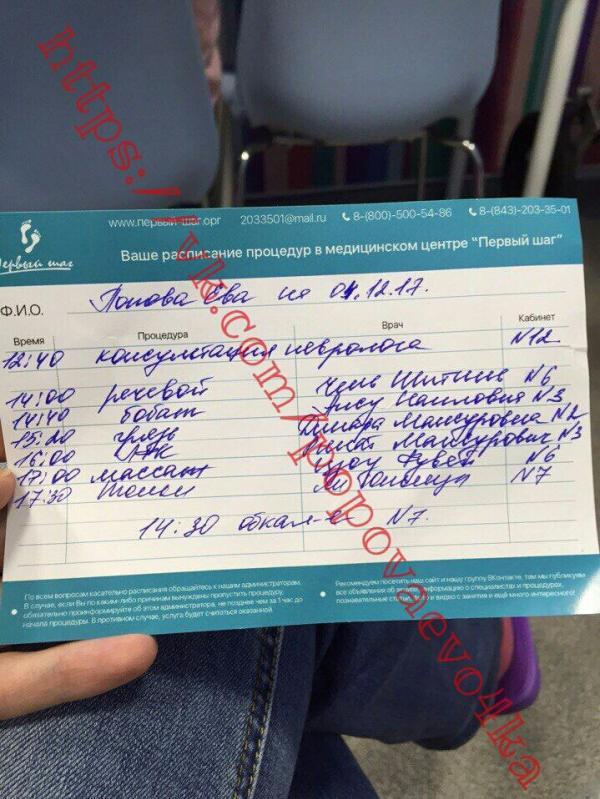 www.первый-шаг.орг 2033501@mail.ru 8-(800)-500-54-86 8-(843)-203-35-01
Первый шаг
Ваше расписание процедур в медицинском центре "Первый шаг"
Ф.И.О. Попова Ева на 04.12.17.
Время Процедура Врач Кабинет
12:40 консультация невролога N12
14:00 речевой N6
14:40 бобат N3
15:20 грязь Мансуровна N2
16:00 Мансурович N3
17:00 массаж N6
17:30 N7
14:30 N7.
По всем вопросам касательно расписания обращайтесь к нашим администраторам.
В случае, если Вы по каким-либо причинам вынуждены пропустить процедуру,
обязательно проинформируйте об этом администратора, не позднее чем за 1 час до
начала процедуры. В противном случае, услуга будет считаться оказанной.
Рекомендуем посетить наш сайт и нашу группу ВКонтакте, там мы публикуем
все объявления об акциях, информацию о специалистах и процедурах,
познавательные статьи, фото и видео с занятия и ещё много интересного!
https://vk.com/popovaevo4ka